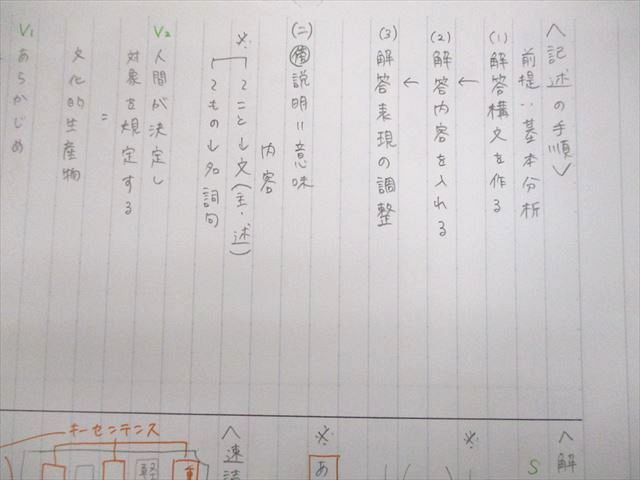 〈記述の手順〉
前提：基本分析
(1) 解答構文を作る
↓
(2) 解答内容を入れる
↓
(3) 解答表現の調整
(二) 傍説明＝意味
内容
※ 〜こと→文（主・述）
〜もの→名詞句
V2 人間が決定し
対象を規定する
＝
文化的生産物
V1 あらかじめ
〈解
S
※
※
あ
〈速読
キーセンテンス
軽
重